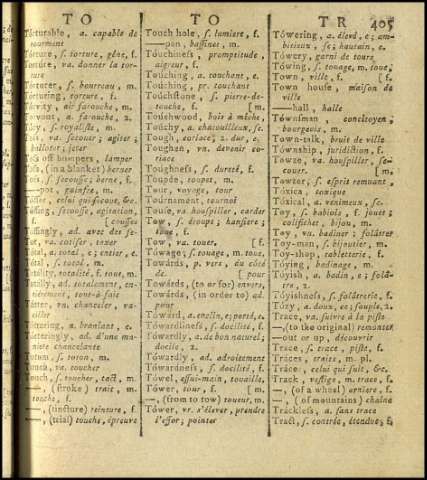 TO
TO
TR
405
Tórturable, a. capable de
tourment
Tórture, s. torture, gêne, f.
Tórture, va. donner la tor-
ture
Tórturer, s. bourreau, m.
Tórturing, torture, f.
Tórvity, air farouche, m.
Tórvous, a. farouche, 2.
Tóry, s. royaliste, m.
va. secouer; agiter;
billoter; jeter
Toss off bumpers, lamper
Toss, (in a blanket) berner
s. secousse; berne, f.
pot, goinfre, m.
celui qui secoue, &c.
secousse, agitation,
[cousses
Tossingly, ad. avec des se-
va. cotiser, taxer
Tótal, a. total, e; entier, e.
Tótal, s. total, m.
Totálity, totalité, f. tout, m.
Tótally, ad. totalement, en-
tièrement, tout-à-fait
Tótter, vn. chanceler, va-
ciller
Tóttering, a. branlant, e.
Tótteringly, ad. d'une ma-
chancelante
s. toton, m.
Touch, va. toucher
Touch, s. toucher, tact, m.
—, (stroke) trait, m.
touche, f.
—, (tincture) teinture, f.
—, (trial) touche, épreuve
Touch hole, s. lumiere, f.
—pan, bassinet, m.
Touchiness, promptitude,
aigreur, f.
Touching, a. touchant, e.
Touching, pr. touchant
Touchstone, s. pierre-de-
touche, f. [m.
Touchwood, bois à mêche,
Touchy, a. chatouilleux, se.
Tough, coriace, 2. dur, e.
Toughen, vn. devenir co-
riace
Toughness, s. dureté, f.
Toupée, toupet, m.
Tour, voyage, tour
Tournament, tournoi
Touse, va. houspiller, carder
Tow, s. étoupe; hansiere;
toue, f.
Tow, va. touer, [f.
Tówage; s. touage, m. toue,
Towárds, p. vers, du côté
de [pour
Towárds, (to or for) envers,
Towárds, (in order to) ad.
pour
Tóward, a. enclin, e; porté, e.
Tówardliness, s. docilité, f.
Tówardly, a. de bon naturel;
docile, 2.
Tówardly, ad. adroitement
Tówardness, s. docilité, f.
Tówel, essui-main, touaille,
Tówer, tour, f. [m.
—, (from to tow) toueur, m.
Tówer, vr. s'élever, prendre
l'essor; pointer
Tówering, a. élevé, e; am-
bitieux, se; hautain, e.
Tówery, garni de tours
Tówing, s. touage, m. toue,
Town, ville, f. [f.
Town house, maison de
ville
—hall, halle
Tównsman, concitoyen;
bourgeois, m.
Town-talk, bruit de ville
Tównship, juridiction, f.
Towze, va. houspiller, se-
couer. [m.
Towzer, s. esprit remuant,
Tóxica, toxique
Tóxical, a. venimeux, se.
Toy, s. babiole, f. jouet;
colifichet, bijou, m.
Toy, va. badiner; folâtrer
Toy-man, s. bijoutier, m.
Toy-shop, tabletterie, f.
Tóying, badinage, m.
Tóyish, a. badin, e; folâ-
tre, 2.
Tóyishness, s. folâtrerie, f.
Tózy, a. doux, ce; souple, 2.
Trace, va. suivre à la piste
—, (to the original) remonter
—out or up, découvrir
Trace, s. trace, piste, f.
Tráces, traits, m. pl.
Trácer, celui qui suit, &c.
Track, vestige, m. trace, f.
—, (of a wheel) orniere, f.
—, (of mountains) chaîne
Trackless, a. sans trace
Tract, s. contrée, étendue, f.